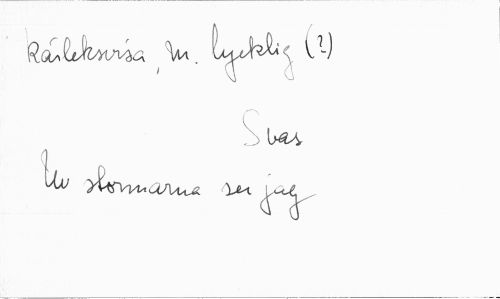 kärleksvisa, m. lycklig (?)
Svas
Ur stormarna ser jag